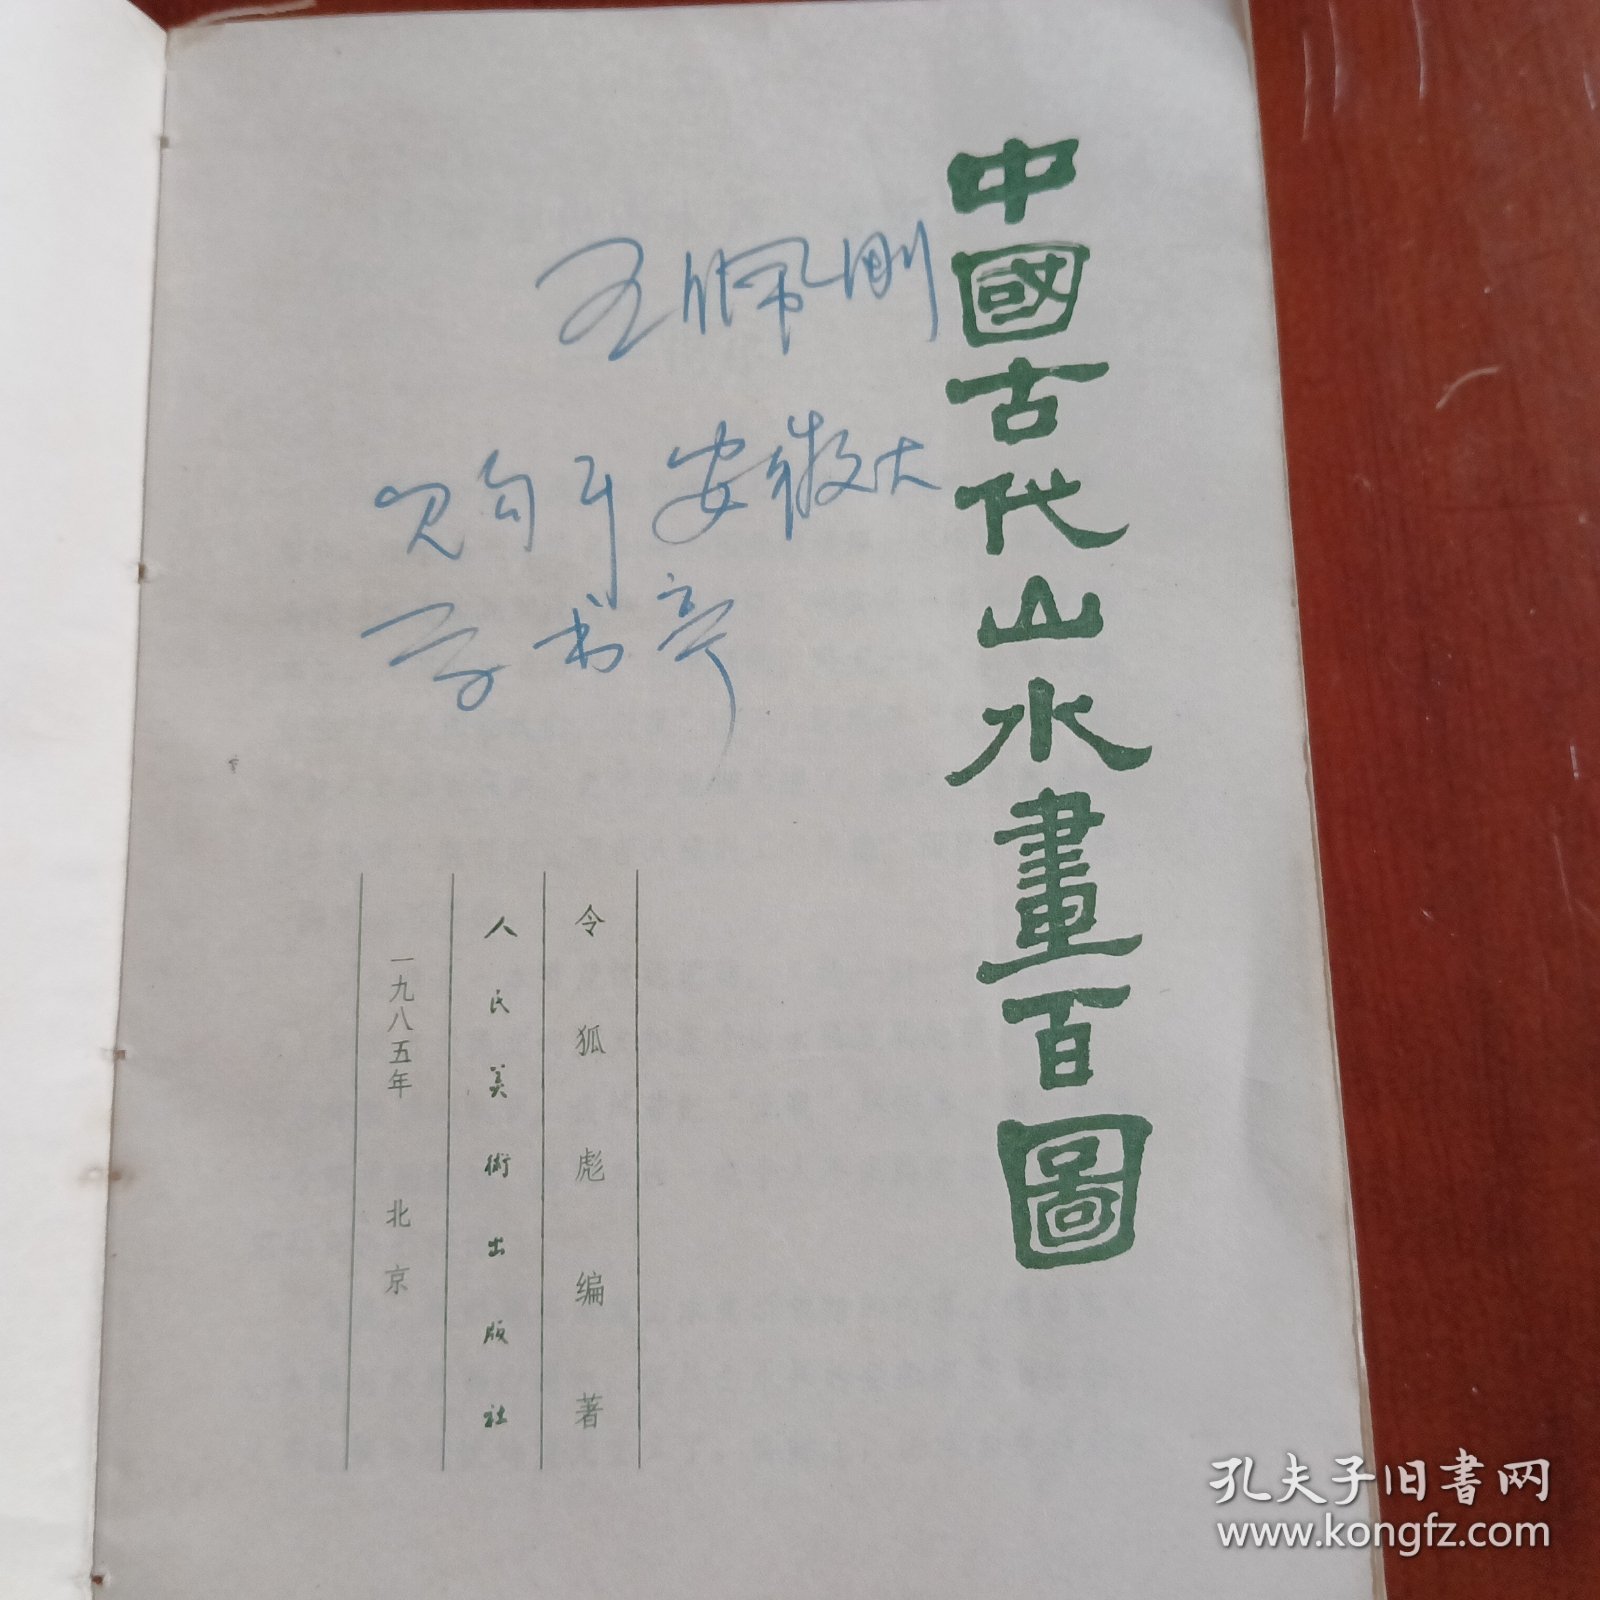 中國古代山水畫百圖
王佩刚
购于安徽大
学书亭
令狐彪编著
人民美術出版社
一九八五年 北京
孔夫子旧书网
www.kongfz.com